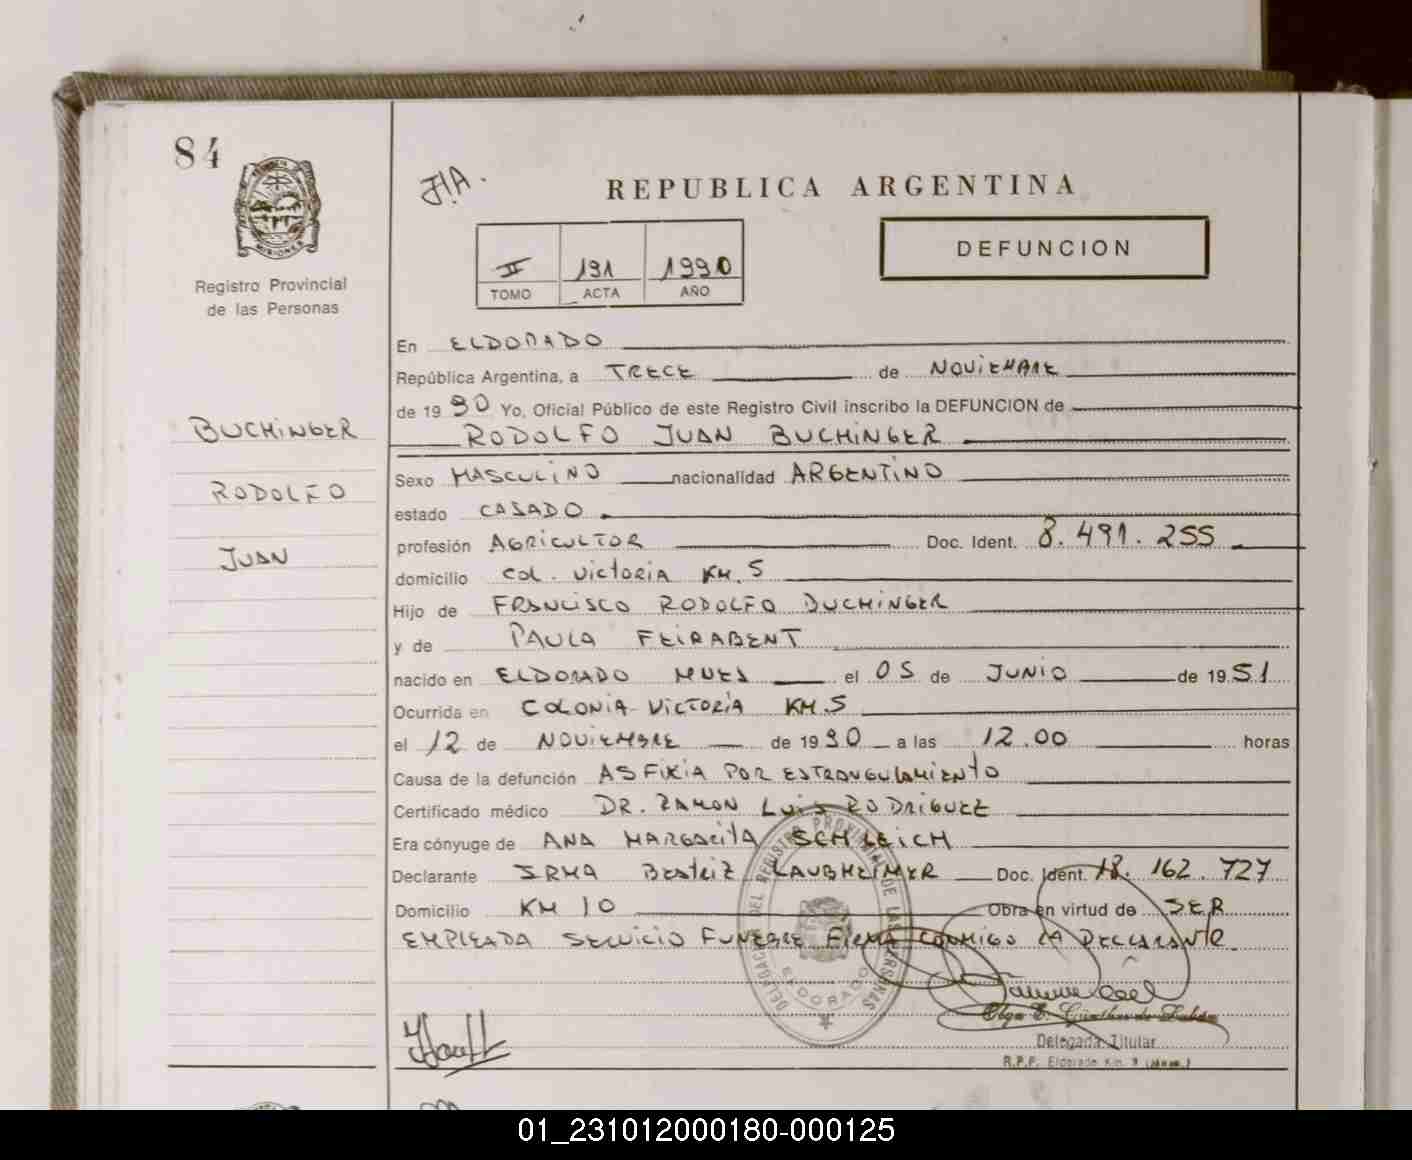 84
MISIONES
Registro Provincial
de las Personas
BUCHINGER
RODOLFO
JUAN
J/A.
REPUBLICA ARGENTINA
II 191 1990
TOMO ACTA AÑO
DEFUNCION
En ELDORADO
República Argentina, a TRECE de NOVIEMBRE
de 1990 Yo, Oficial Público de este Registro Civil inscribo la DEFUNCION de
RODOLFO JUAN BUCHINGER
Sexo MASCULINO nacionalidad ARGENTINO
estado CASADO.
profesión AGRICULTOR Doc. Ident. 8.491.255
domicilio COL. VICTORIA KM. 5
Hijo de FRANCISCO RODOLFO BUCHINGER
y de PAULA FEIRABENT
nacido en ELDORADO MNES el 05 de JUNIO de 1951
Ocurrida en COLONIA VICTORIA KM.5
el 12 de NOVIEMBRE de 1990 a las 12.00 horas
Causa de la defunción ASFIXIA POR ESTRANGULAMIENTO
Certificado médico DR. RAMON LUIS RODRIGUEZ
Era cónyuge de ANA MARGARITA SCHLEICH
Declarante IRMA BEATRIZ LAUBHEIMER Doc. Ident. 18.162.727
Domicilio KM 10 Obra en virtud de SER
EMPLEADA SERVICIO FUNEBRE FIRMA CONMIGO LA DECLARANTE
DELEGACION DEL REGISTRO PROVINCIAL DE LAS PERSONAS
ELDORADO
Olga E. Günther de
Delegada Titular
R.P.P. Eldorado Km. 9 (Mnes.)
01_231012000180-000125